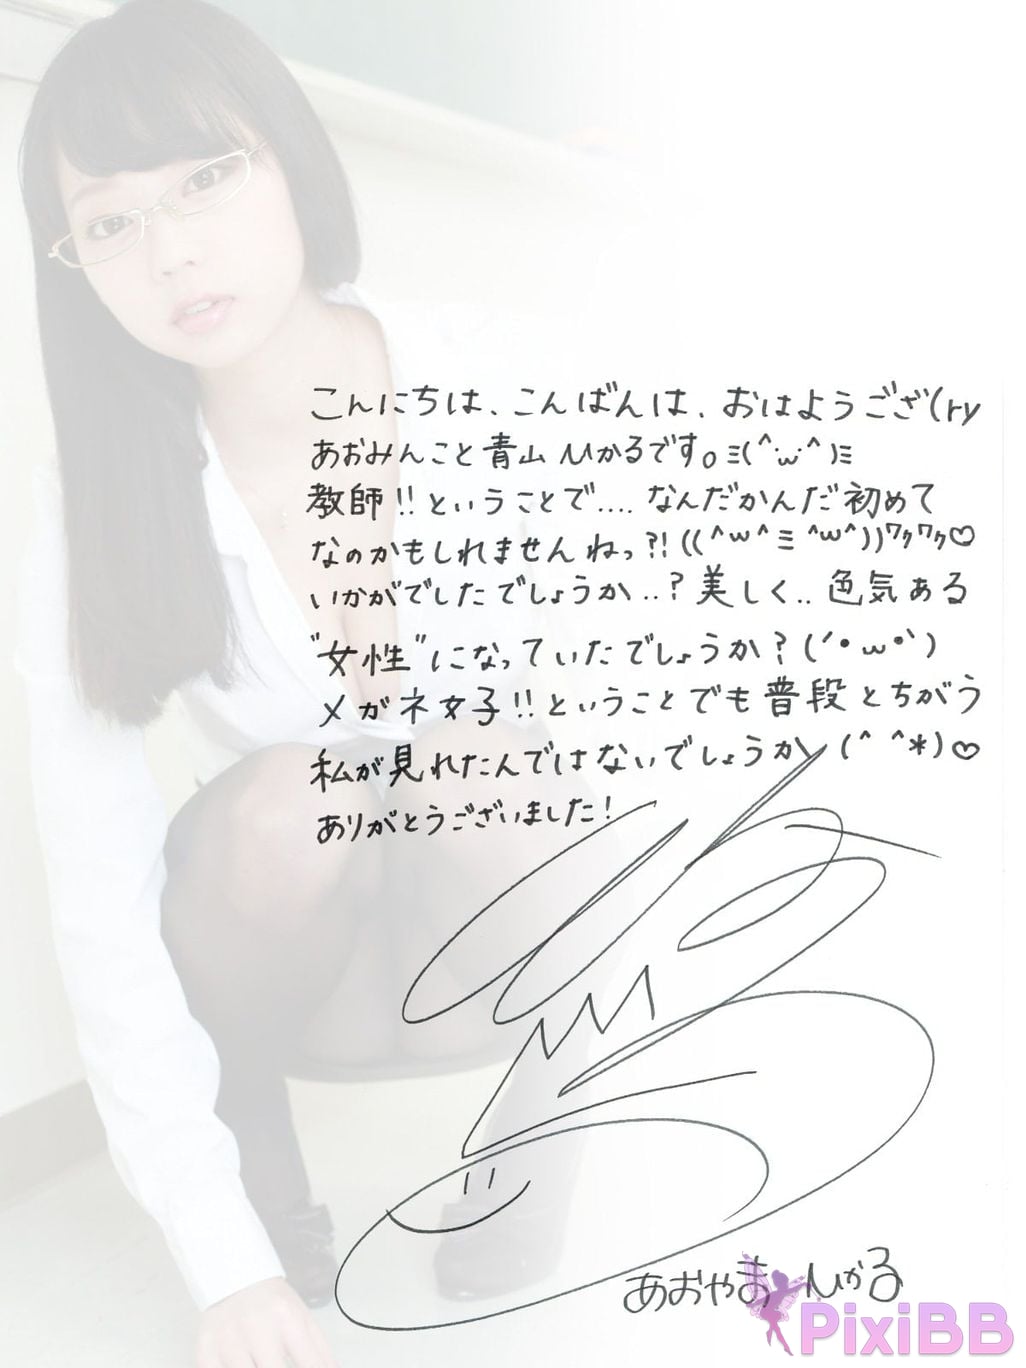 こんにちは、こんばんは、おはようござ(ry
あおみんこと青山ひかるです。ミ(^ω^)ミ
教師!!ということで....なんだかんだ初めて
なのかもしれませんねっ?!((^ω^ミ^ω^))ワクワク♡
いかがでしたでしょうか..?美しく..色気ある
"女性"になっていたでしょうか?(´•ω•`)
メガネ女子!!ということでも普段とちがう
私が見れたんではないでしょうか(^ ^*)♡
ありがとうございました!
あおやま ひかる
PixiBB